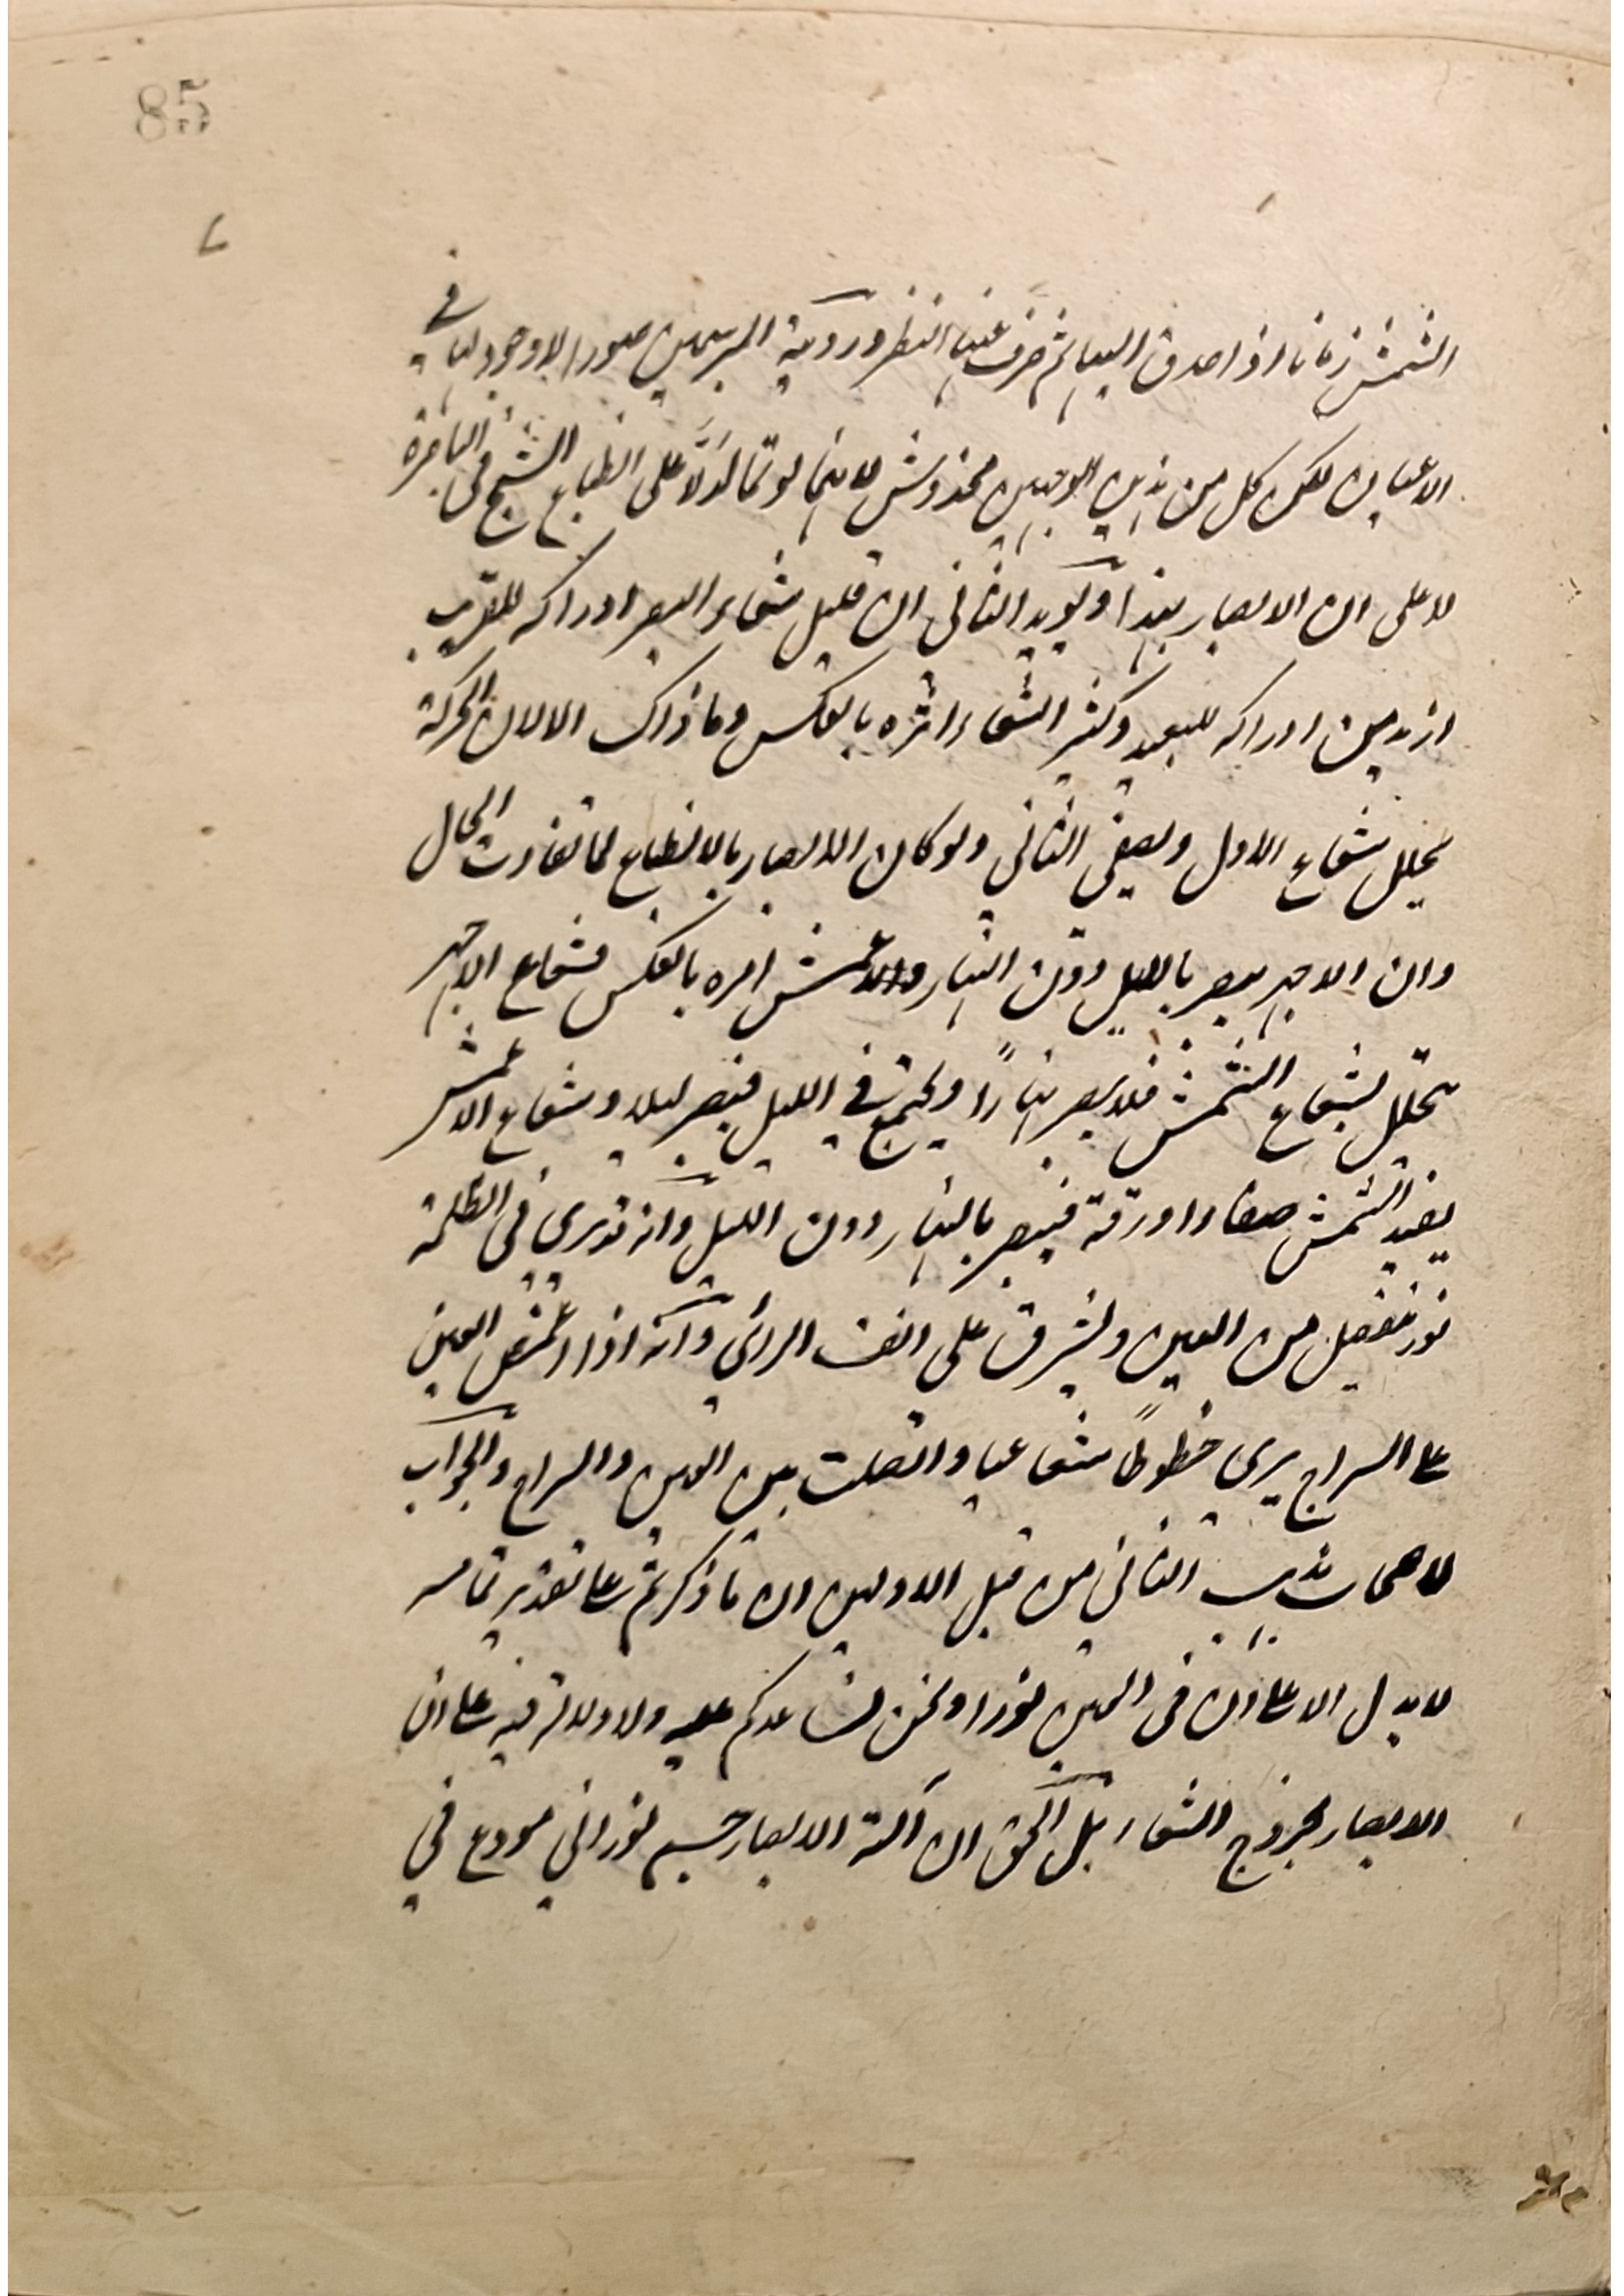 85
الشمس زمانا اذا حدق اليها ثم صرف عنها النظر ورؤية المبرسمين صورا لا وجود لها في
الاعيان لكن كل من هذين الوجهين مخدوش لانهما لو تما لدلا على انطباع الشبح في الباصرة
لا على ان الابصار بهذا ويؤيد الثاني ان قليل شعاع البصر ادراكه للقريب
ازيد من ادراكه للبعيد وكثير الشعاع امره بالعكس وما ذاك الا لان الحركة
تحلل شعاع الاول ويصفى الثاني ولو كان الابصار بالانطباع لما تفاوت الحال
وان الاجهر يبصر بالليل دون النهار والاعمش امره بالعكس فشعاع الاجهر
يتحلل بشعاع الشمس فلا يبصر نهارًا ويجتمع في الليل فيبصر ليلا وشعاع الاعمش
يفيد الشمس صفاء او رقة فيبصر بالنهار دون الليل وانه قد يرى في الظلمة
نور ينفصل من العين ويشرق على انف الرائي وانه اذا اغمض العين
على السراج يرى خطوطًا شعاعيا واتصلت بين العين والسراج والجواب
لاصحاب المذهب الثاني من قبل الاولين ان ما ذكرتم على تقدير تمامه
لا يدل الا على ان في العين نورا ونحن نساعدكم عليه ولا دلالة فيه على ان
الابصار بخروج الشعاع بل الحق ان آلة الابصار جسم نوراني مودع في